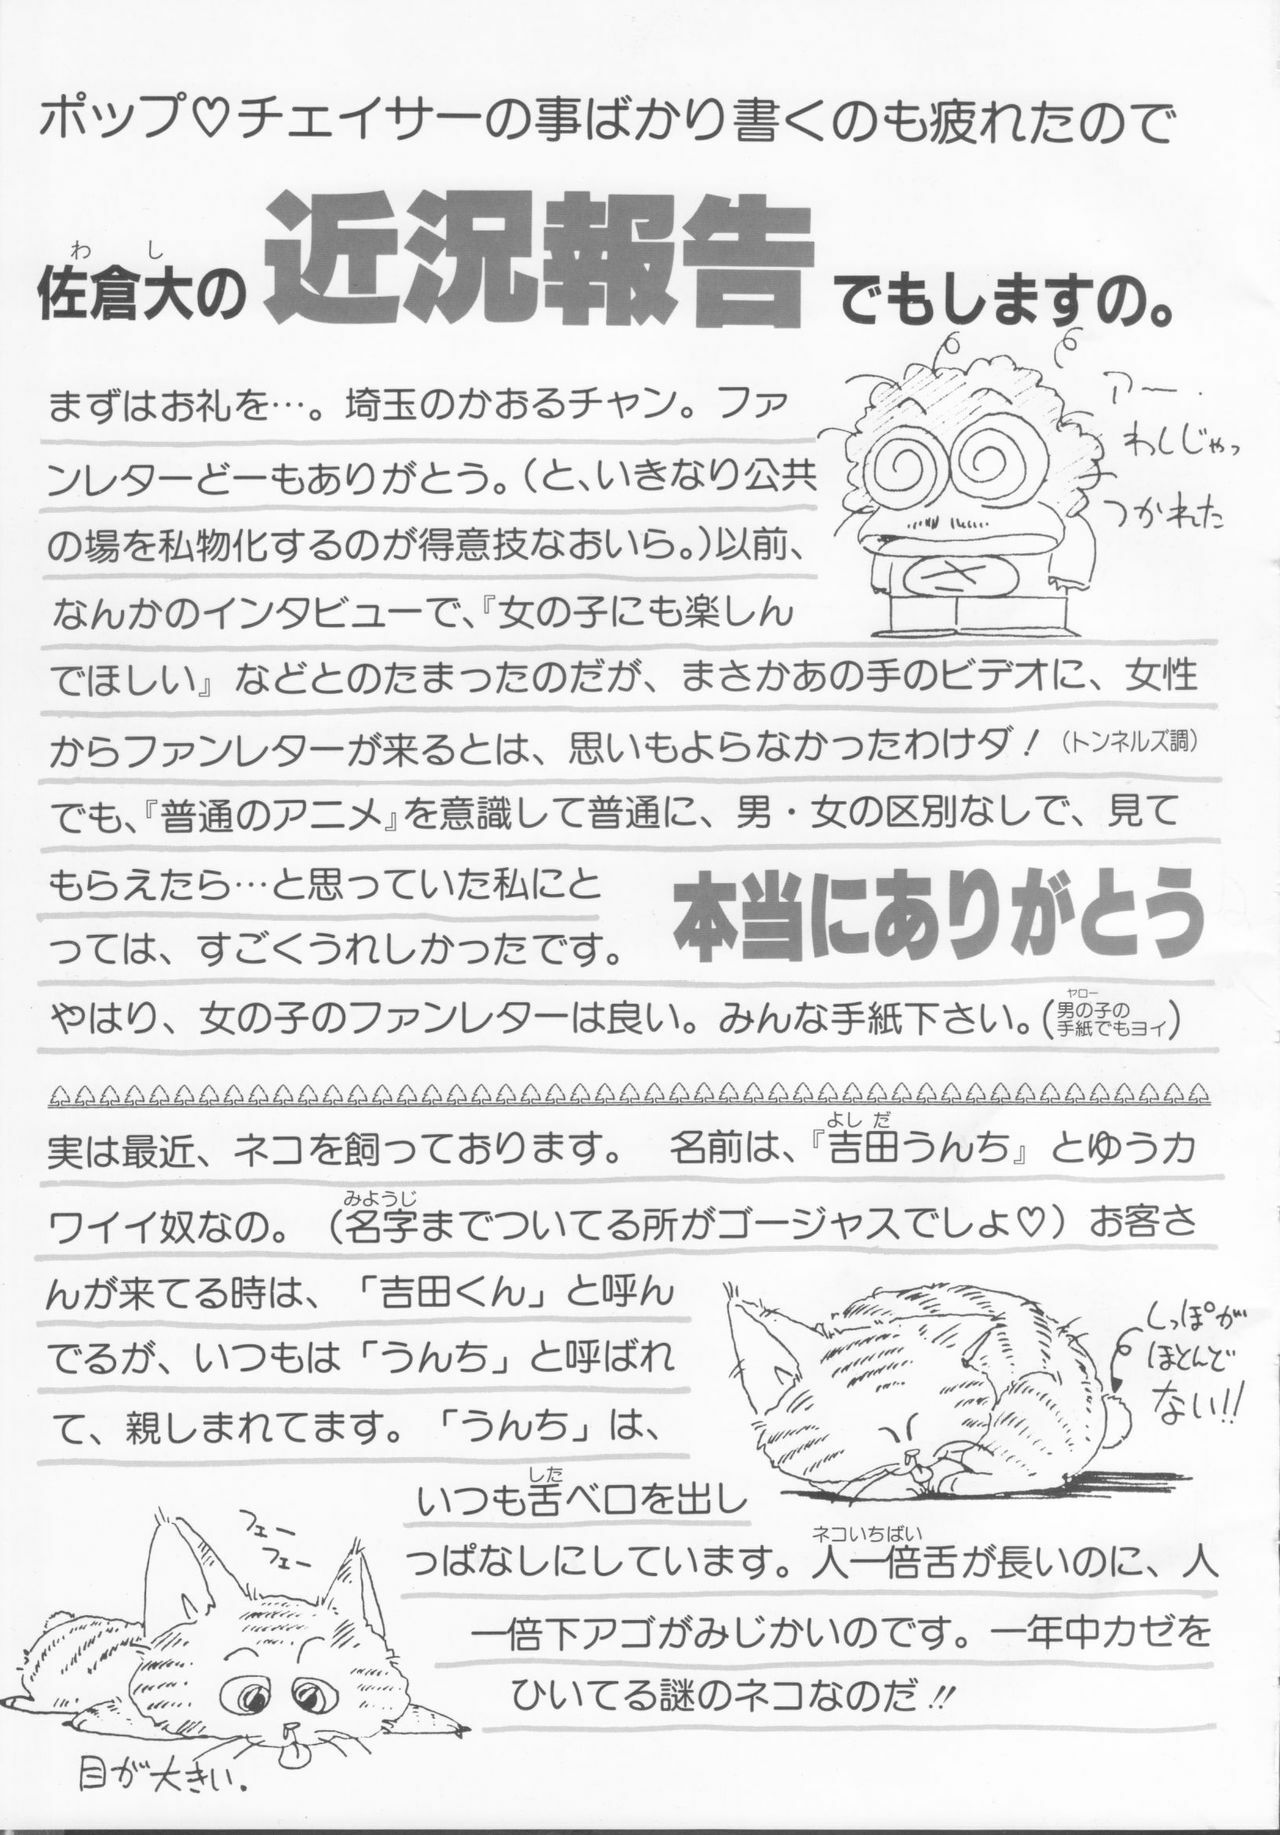 ポップ♡チェイサーの事ばかり書くのも疲れたので
わし
佐倉大の近況報告でもしますの。
まずはお礼を…。埼玉のかおるチャン。ファ
ンレターどーもありがとう。(と、いきなり公共
の場を私物化するのが得意技なおいら。)以前、
なんかのインタビューで、『女の子にも楽しん
でほしい』などとのたまったのだが、まさかあの手のビデオに、女性
からファンレターが来るとは、思いもよらなかったわけダ!(トンネルズ調)
でも、『普通のアニメ』を意識して普通に、男・女の区別なしで、見て
もらえたら…と思っていた私にと
っては、すごくうれしかったです。
本当にありがとう
ヤロー
やはり、女の子のファンレターは良い。みんな手紙下さい。(男の子の手紙でもヨイ)
アー.
わしじゃっ
つかれた
よしだ
実は最近、ネコを飼っております。 名前は、『吉田うんち』とゆうカ
みようじ
ワイイ奴なの。(名字までついてる所がゴージャスでしょ♡)お客さ
んが来てる時は、「吉田くん」と呼ん
でるが、いつもは「うんち」と呼ばれ
て、親しまれてます。「うんち」は、
した
いつも舌ベロを出し
ネコいちばい
っぱなしにしています。人一倍舌が長いのに、人
一倍下アゴがみじかいのです。一年中カゼを
ひいてる謎のネコなのだ!!
しっぽが
ほとんど
ない!!
フェー
フェー
目が大きい.